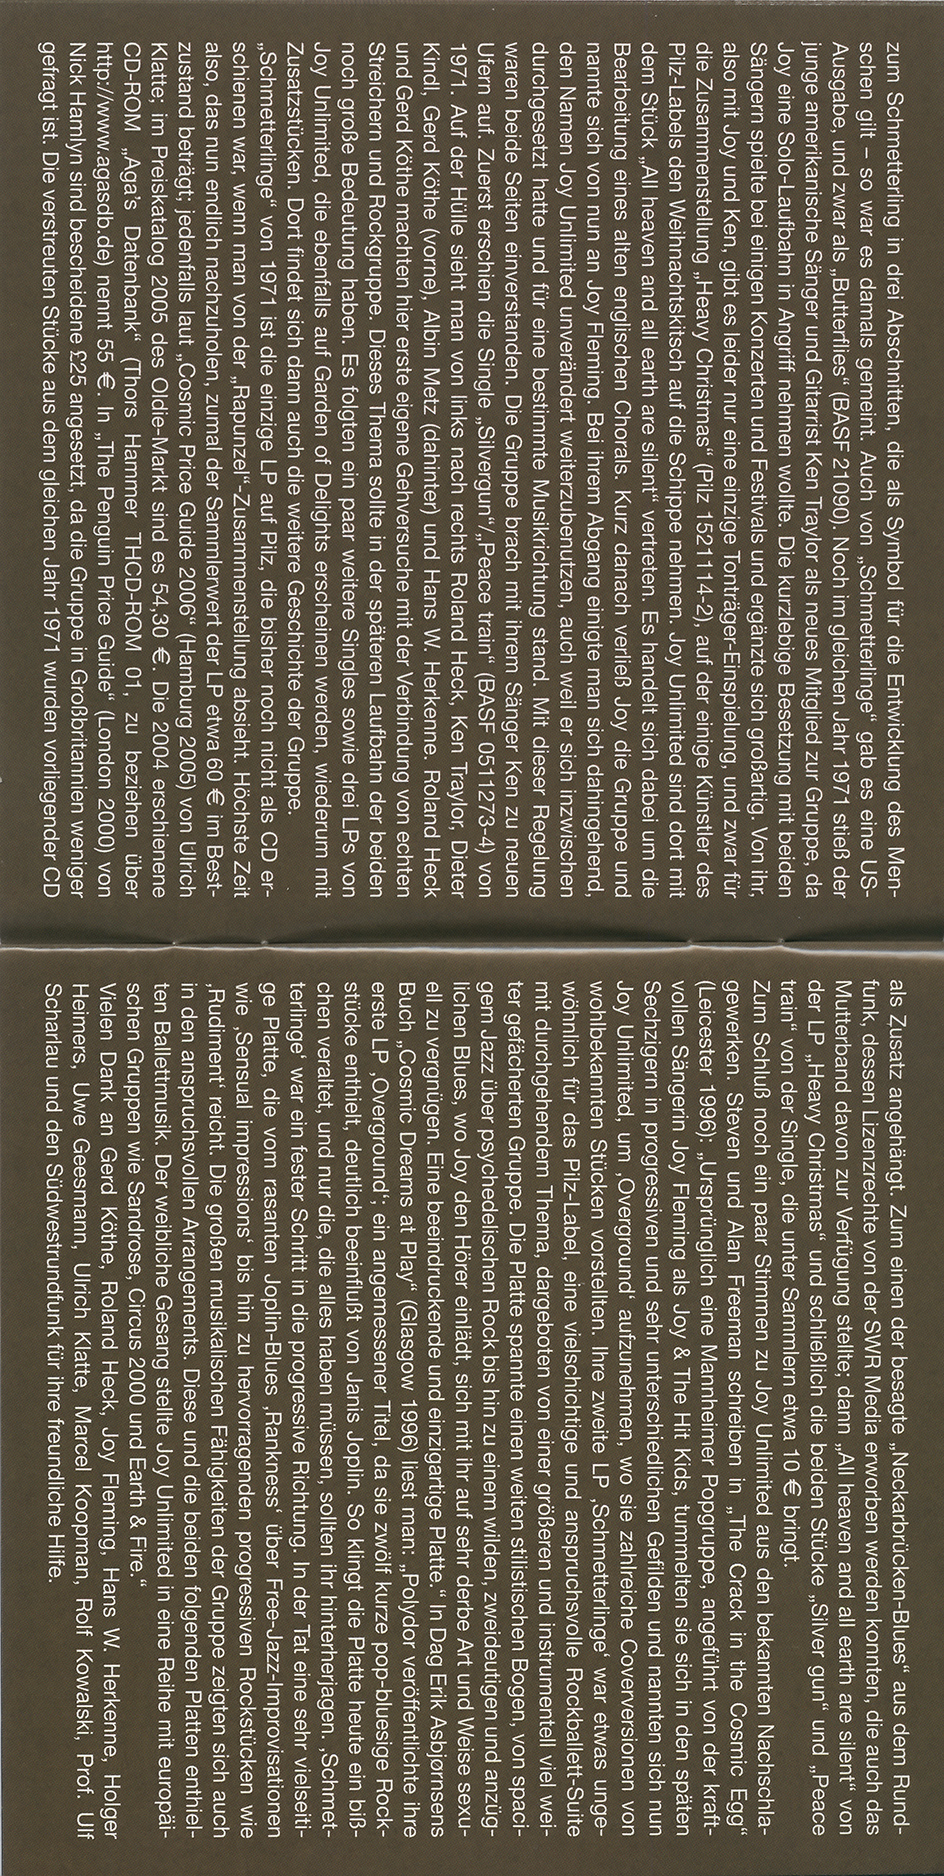 zum Schmetterling in drei Abschnitten, die als Symbol für die Entwicklung des Men-
schen gilt – so war es damals gemeint. Auch von „Schmetterlinge“ gab es eine US-
Ausgabe, und zwar als „Butterflies“ (BASF 21090). Noch im gleichen Jahr 1971 stieß der
junge amerikanische Sänger und Gitarrist Ken Traylor als neues Mitglied zur Gruppe, da
Joy eine Solo-Laufbahn in Angriff nehmen wollte. Die kurzlebige Besetzung mit beiden
Sängern spielte bei einigen Konzerten und Festivals und ergänzte sich großartig. Von ihr,
also mit Joy und Ken, gibt es leider nur eine einzige Tonträger-Einspielung, und zwar für
die Zusammenstellung „Heavy Christmas“ (Pilz 1521114-2), auf der einige Künstler des
Pilz-Labels den Weihnachtskitsch auf die Schippe nehmen. Joy Unlimited sind dort mit
dem Stück „All heaven and all earth are silent“ vertreten. Es handelt sich dabei um die
Bearbeitung eines alten englischen Chorals. Kurz danach verließ Joy die Gruppe und
nannte sich von nun an Joy Fleming. Bei ihrem Abgang einigte man sich dahingehend,
den Namen Joy Unlimited unverändert weiterzubenutzen, auch weil er sich inzwischen
durchgesetzt hatte und für eine bestimmte Musikrichtung stand. Mit dieser Regelung
waren beide Seiten einverstanden. Die Gruppe brach mit ihrem Sänger Ken zu neuen
Ufern auf. Zuerst erschien die Single „Silvergun“/„Peace train“ (BASF 0511273-4) von
1971. Auf der Hülle sieht man von links nach rechts Roland Heck, Ken Traylor, Dieter
Kindl, Gerd Köthe (vorne), Albin Metz (dahinter) und Hans W. Herkenne. Roland Heck
und Gerd Köthe machten hier erste eigene Gehversuche mit der Verbindung von echten
Streichern und Rockgruppe. Dieses Thema sollte in der späteren Laufbahn der beiden
noch große Bedeutung haben. Es folgten ein paar weitere Singles sowie drei LPs von
Joy Unlimited, die ebenfalls auf Garden of Delights erscheinen werden, wiederum mit
Zusatzstücken. Dort findet sich dann auch die weitere Geschichte der Gruppe.
„Schmetterlinge“ von 1971 ist die einzige LP auf Pilz, die bisher noch nicht als CD er-
schienen war, wenn man von der „Rapunzel“-Zusammenstellung absieht. Höchste Zeit
also, das nun endlich nachzuholen, zumal der Sammlerwert der LP etwa 60 € im Best-
zustand beträgt; jedenfalls laut „Cosmic Price Guide 2006“ (Hamburg 2005) von Ulrich
Klatte; im Preiskatalog 2005 des Oldie-Markt sind es 54,30 €. Die 2004 erschienene
CD-ROM „Aga's Datenbank“ (Thors Hammer THCD-ROM 01, zu beziehen über
http://www.agasdb.de) nennt 55 €. In „The Penguin Price Guide“ (London 2000) von
Nick Hamlyn sind bescheidene £25 angesetzt, da die Gruppe in Großbritannien weniger
gefragt ist. Die verstreuten Stücke aus dem gleichen Jahr 1971 wurden vorliegender CD
als Zusatz angehängt. Zum einen der besagte „Neckarbrücken-Blues“ aus dem Rund-
funk, dessen Lizenzrechte von der SWR Media erworben werden konnten, die auch das
Mutterband davon zur Verfügung stellte; dann „All heaven and all earth are silent“ von
der LP „Heavy Christmas“ und schließlich die beiden Stücke „Silver gun“ und „Peace
train“ von der Single, die unter Sammlern etwa 10 € bringt.
Zum Schluß noch ein paar Stimmen zu Joy Unlimited aus den bekannten Nachschla-
gewerken. Steven und Alan Freeman schreiben in „The Crack in the Cosmic Egg“
(Leicester 1996): „Ursprünglich eine Mannheimer Popgruppe, angeführt von der kraft-
vollen Sängerin Joy Fleming als Joy & The Hit Kids, tummelten sie sich in den späten
Sechzigern in progressiven und sehr unterschiedlichen Gefilden und nannten sich nun
Joy Unlimited, um ‚Overground‘ aufzunehmen, wo sie zahlreiche Coverversionen von
wohlbekannten Stücken vorstellten. Ihre zweite LP ‚Schmetterlinge‘ war etwas unge-
wöhnlich für das Pilz-Label, eine vielschichtige und anspruchsvolle Rockballett-Suite
mit durchgehendem Thema, dargeboten von einer größeren und instrumentell viel wei-
ter gefächerten Gruppe. Die Platte spannte einen weiten stilistischen Bogen, von spaci-
gem Jazz über psychedelischen Rock bis hin zu einem wilden, zweideutigen und anzüg-
lichen Blues, wo Joy den Hörer einlädt, sich mit ihr auf sehr derbe Art und Weise sexu-
ell zu vergnügen. Eine beeindruckende und einzigartige Platte.“ In Dag Erik Asbjørnsens
Buch „Cosmic Dreams at Play“ (Glasgow 1996) liest man: „Polydor veröffentlichte ihre
erste LP ‚Overground‘; ein angemessener Titel, da sie zwölf kurze pop-bluesige Rock-
stücke enthielt, deutlich beeinflußt von Janis Joplin. So klingt die Platte heute ein biß-
chen veraltet, und nur die, die alles haben müssen, sollten ihr hinterherjagen. ‚Schmet-
terlinge‘ war ein fester Schritt in die progressive Richtung. In der Tat eine sehr vielseiti-
ge Platte, die vom rasanten Joplin-Blues ‚Rankness‘ über Free-Jazz-Improvisationen
wie ‚Sensual impressions‘ bis hin zu hervorragenden progressiven Rockstücken wie
‚Rudiment‘ reicht. Die großen musikalischen Fähigkeiten der Gruppe zeigten sich auch
in den anspruchsvollen Arrangements. Diese und die beiden folgenden Platten enthiel-
ten Ballettmusik. Der weibliche Gesang stellte Joy Unlimited in eine Reihe mit europäi-
schen Gruppen wie Sandrose, Circus 2000 und Earth & Fire.“
Vielen Dank an Gerd Köthe, Roland Heck, Joy Fleming, Hans W. Herkenne, Holger
Heimers, Uwe Geesmann, Ulrich Klatte, Marcel Koopman, Rolf Kowalski, Prof. Ulf
Scharlau und den Südwestrundfunk für ihre freundliche Hilfe.